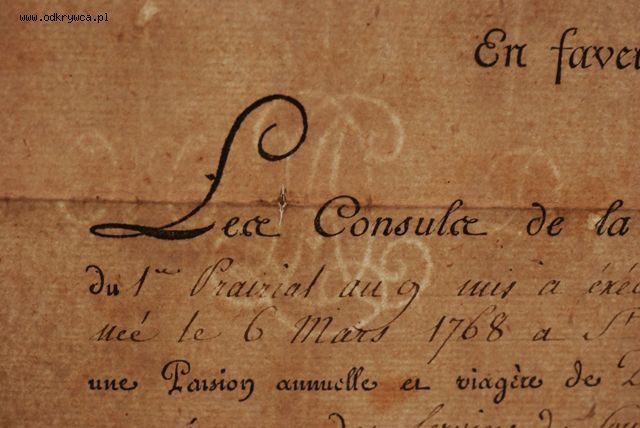 www.odkrywca.pl
En faveu
Les Consuls de la
du 1er Prairial an 9 mis a exéc
née le 6 Mars 1768 a St
une Pension annuelle et viagère de